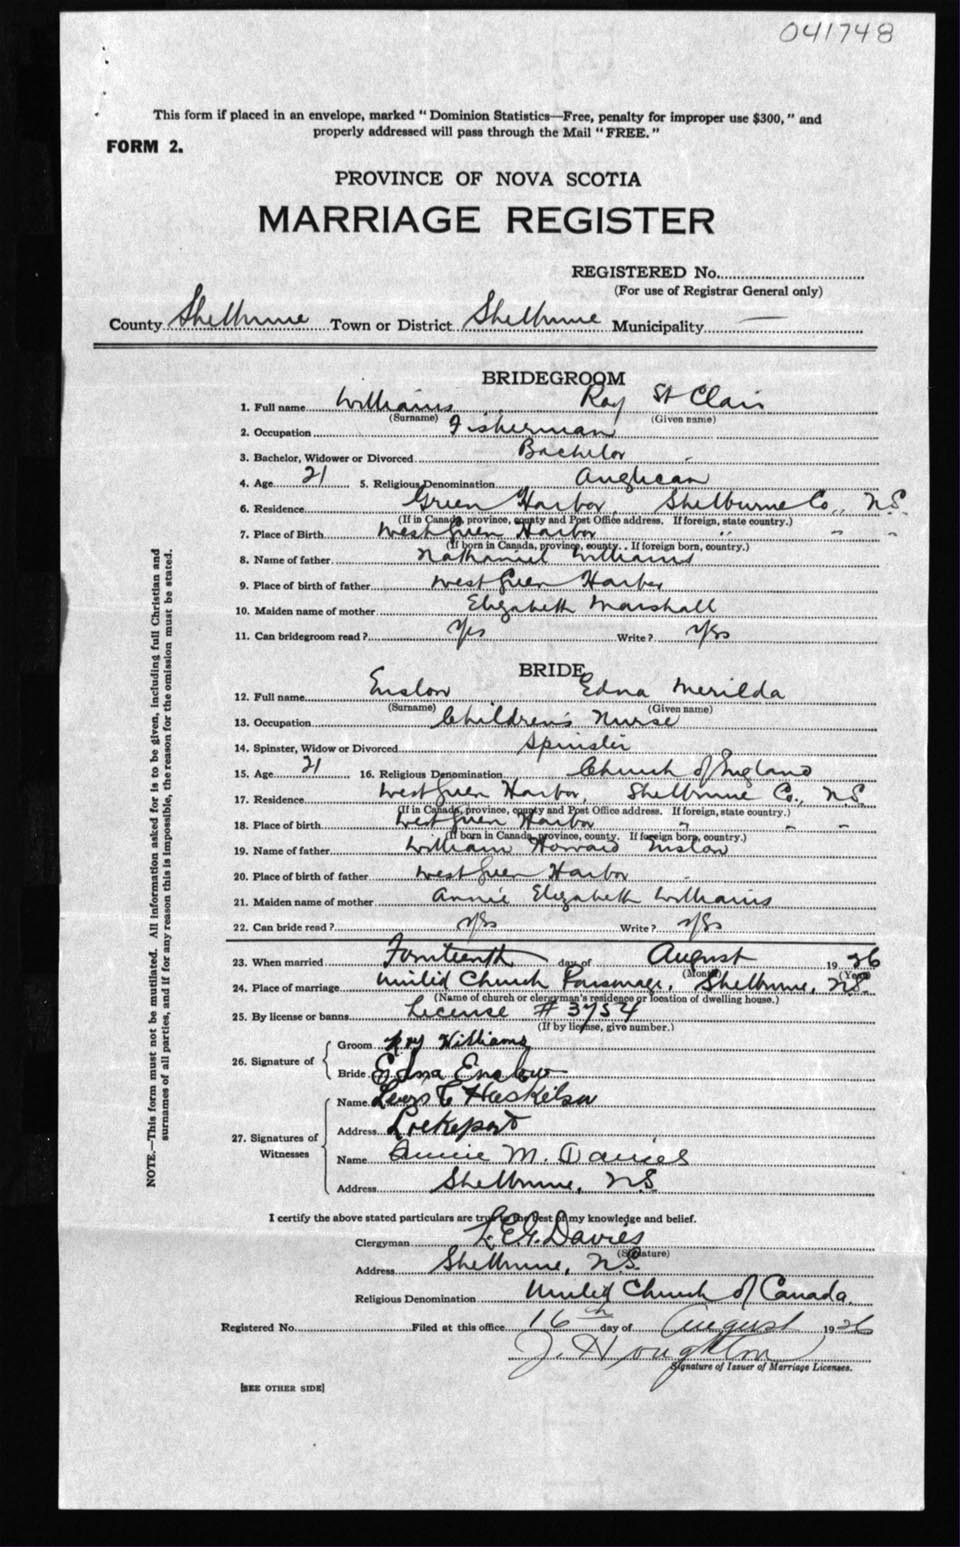 041748
This form if placed in an envelope, marked "Dominion Statistics—Free, penalty for improper use $300," and
properly addressed will pass through the Mail "FREE."
FORM 2.
PROVINCE OF NOVA SCOTIA
MARRIAGE REGISTER
REGISTERED No.
(For use of Registrar General only)
County Shelburne Town or District Shelburne Municipality —
BRIDEGROOM
1. Full name Williams Ray St Clair
(Surname) (Given name)
2. Occupation Fisherman
3. Bachelor, Widower or Divorced Bachelor
4. Age 21 5. Religious Denomination Anglican
6. Residence Green Harbor, Shelburne Co., N.S.
(If in Canada, province, county and Post Office address. If foreign, state country.)
7. Place of Birth West Green Harbor " " "
(If born in Canada, province, county. If foreign born, country.)
8. Name of father Nathaniel Williams
9. Place of birth of father West Green Harbor
10. Maiden name of mother Elizabeth Marshall
11. Can bridegroom read? Yes Write? Yes
BRIDE
12. Full name Enslow Edna Merilda
(Surname) (Given name)
13. Occupation Children's Nurse
14. Spinster, Widow or Divorced Spinster
15. Age 21 16. Religious Denomination Church of England
17. Residence West Green Harbor, Shelburne Co., N.S.
(If in Canada, province, county and Post Office address. If foreign, state country.)
18. Place of birth West Green Harbor " " "
(If born in Canada, province, county. If foreign born, country.)
19. Name of father William Howard Enslow
20. Place of birth of father West Green Harbor
21. Maiden name of mother Annie Elizabeth Williams
22. Can bride read? Yes Write? Yes
23. When married Fourteenth day of August 1926
(Month) (Year)
24. Place of marriage United Church Parsonage, Shelburne, N.S.
(Name of church or clergyman's residence or location of dwelling house.)
25. By license or banns License # 3754
(If by license, give number.)
26. Signature of Groom Ray Williams
Bride Edna Enslow
27. Signatures of Witnesses Name Haskilsa
Address Lockeport
Name Annie M. Davies
Address Shelburne, N.S.
I certify the above stated particulars are true to the best of my knowledge and belief.
Clergyman Davies
(Signature)
Address Shelburne, N.S.
Religious Denomination United Church of Canada.
Registered No. Filed at this office 16th day of August 1926
J. Houghton
Signature of Issuer of Marriage Licenses.
[SEE OTHER SIDE]
NOTE.—This form must not be mutilated. All information asked for is to be given, including full Christian and
surnames of all parties, and if for any reason this is impossible, the reason for the omission must be stated.